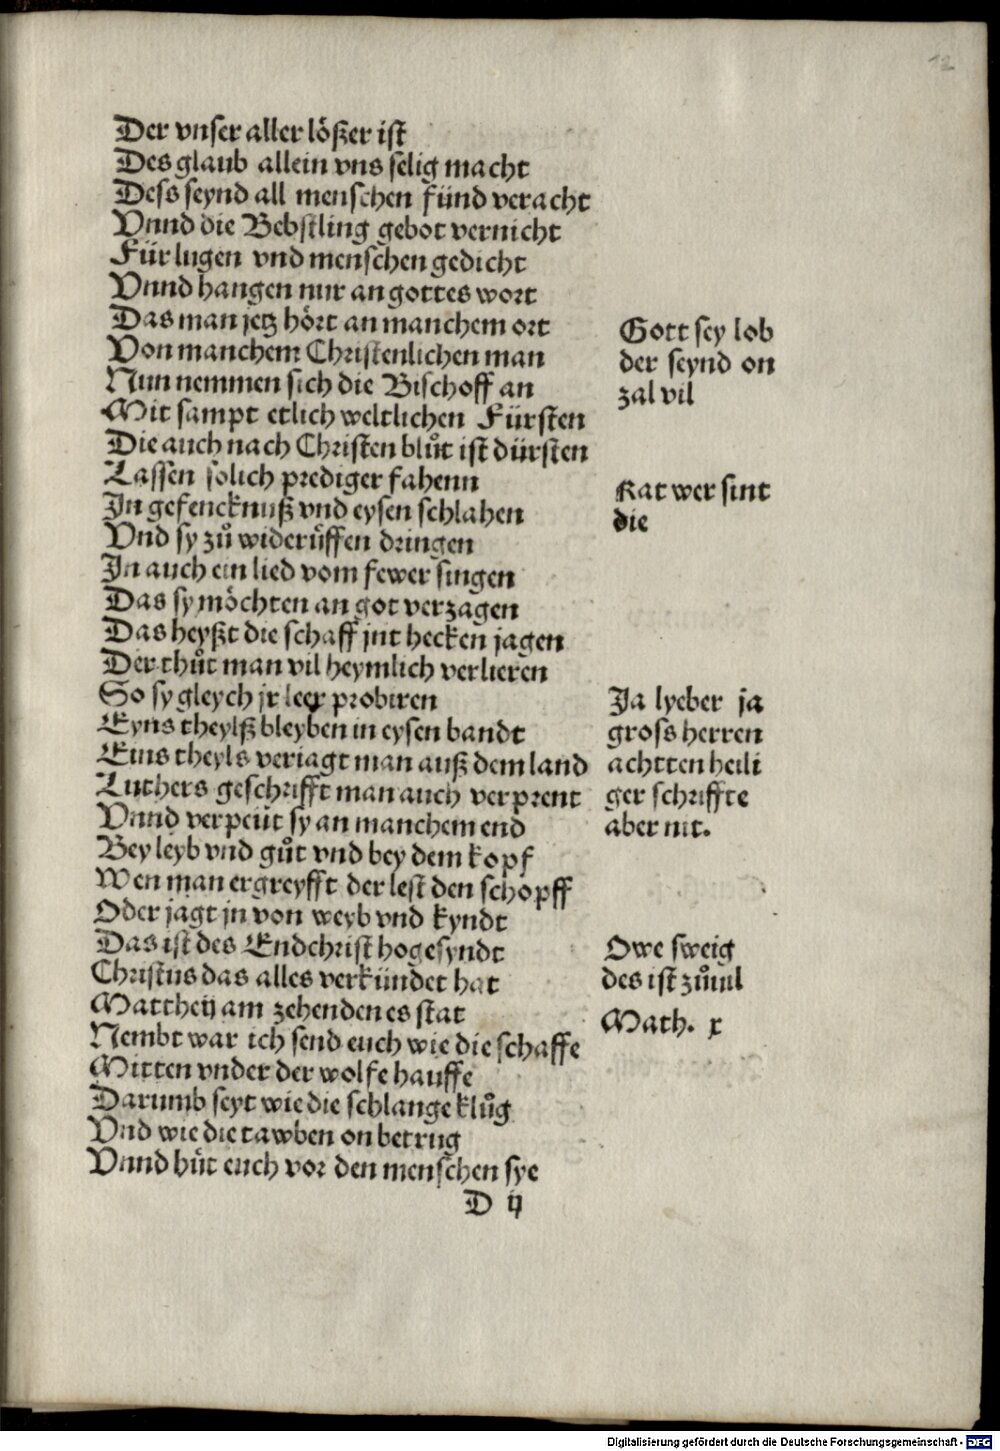 12
Der vnser aller lößer ist
Des glaub allein vns selig macht
Dess seynd all menschen fünd veracht
Vnnd die Bebstling gebot vernicht
Für lugen vnd menschen gedicht
Vnnd hangen nur an gottes wort
Das man jetz hört an manchem ort
Von manchem Christenlichen man
Nun nemmen sich die Bischoff an
Mit sampt etlich weltlichen Fürsten
Die auch nach Christen blůt ist dürsten
Lassen solich prediger fahenn
In gefencknuß vnd eysen schlahen
Vnd sy zů widerůffen dringen
In auch ein lied vom fewer singen
Das sy möchten an got verzagen
Das heyßt die schaff jnt hecken jagen
Der thůt man vil heymlich verlieren
So sy gleych jr leer probiren
Eyns theylß bleyben in eysen bandt
Eins theyls veriagt man auß dem land
Luthers geschrifft man auch verprent
Vnnd verpeüt sy an manchem end
Bey leyb vnd gůt vnd bey dem kopf
Wen man ergreyfft der lest den schopff
Oder jagt jn von weyb vnd kyndt
Das ist des Endchrist hogesyndt
Christus das alles verkündet hat
Mattheij am zehenden es stat
Nembt war ich send euch wie die schaffe
Mitten vnder der wolfe hauffe
Darumb seyt wie die schlange klůg
Vnd wie die tawben on betrug
Vnnd hüt euch vor den menschen sye
D ij
Gott sey lob
der seynd on
zal vil
Rat wer sint
die
Ja lyeber ja
gross herren
achtten heili
ger schriffte
aber nit.
Owe sweig
des ist zůuil
Math. x
Digitalisierung gefördert durch die Deutsche Forschungsgemeinschaft - DFG